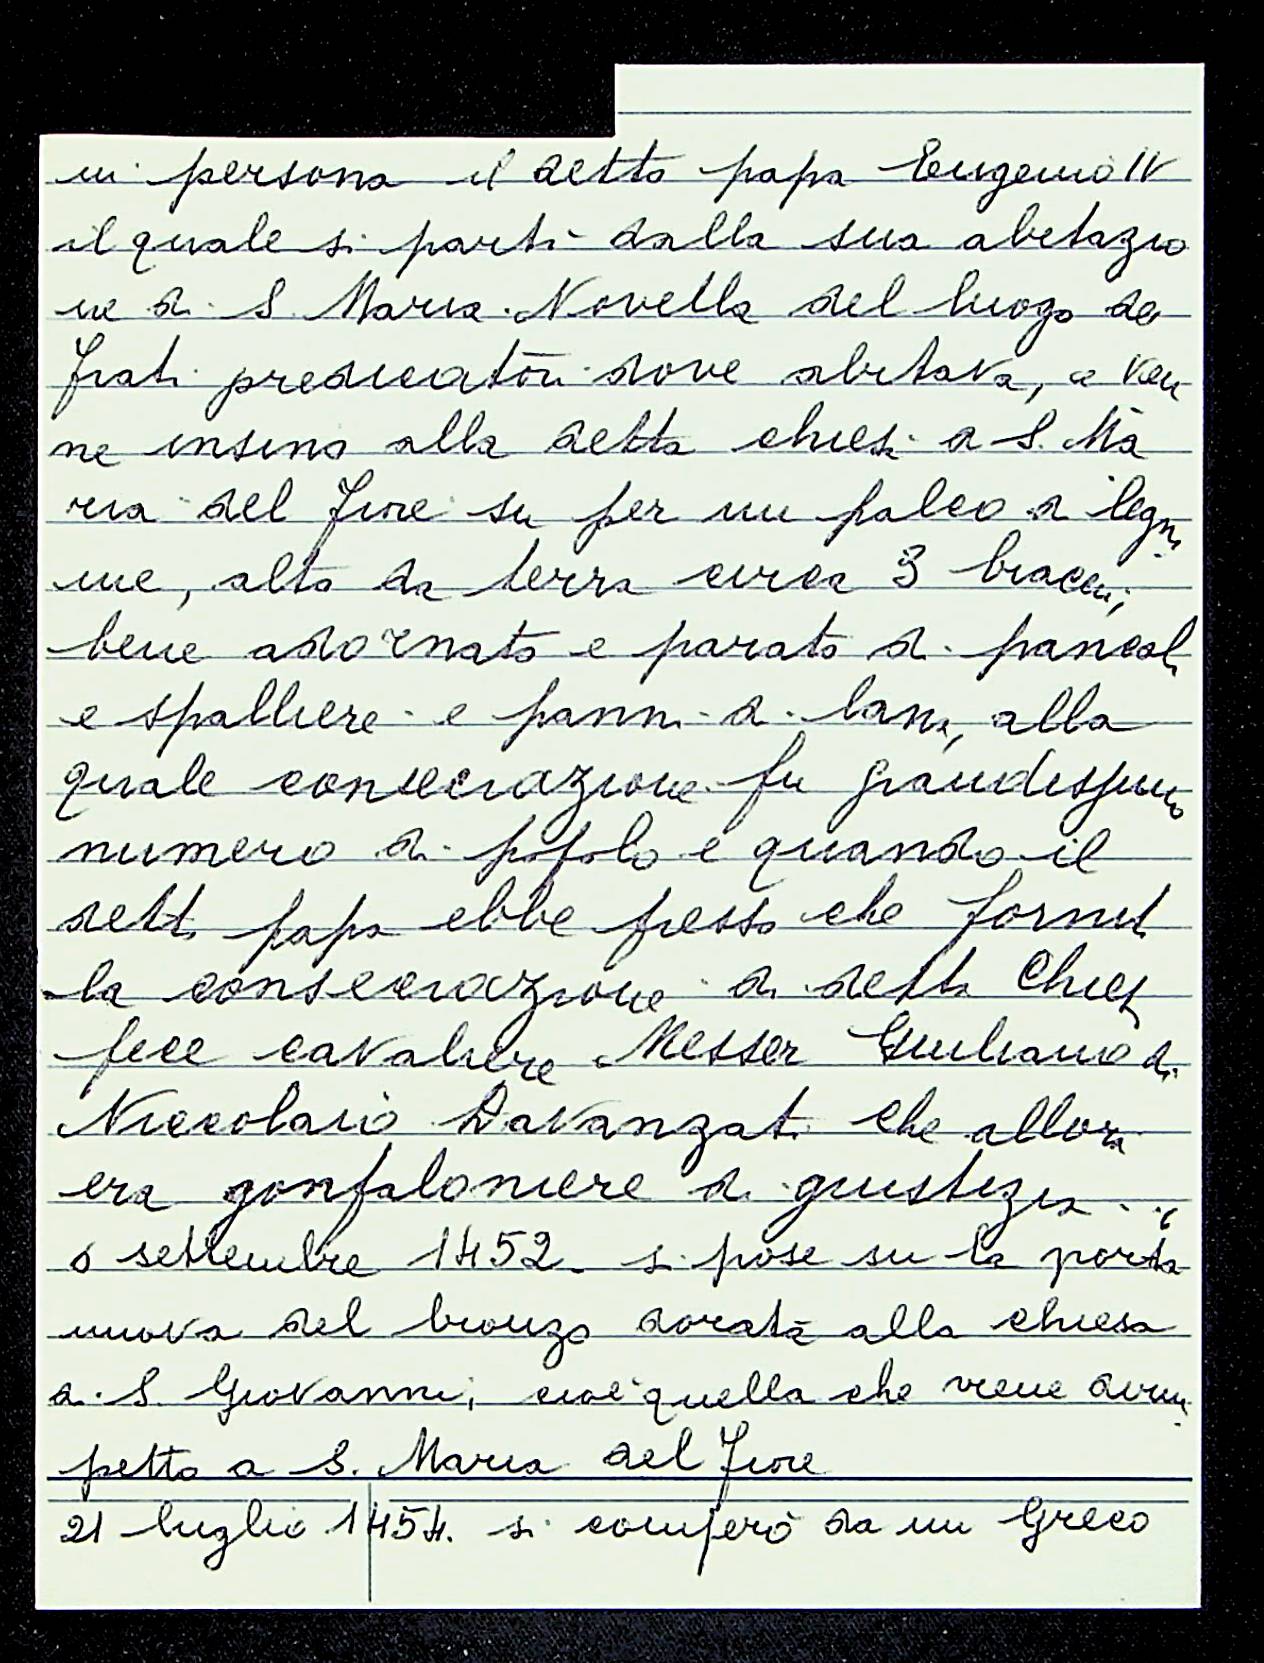 in persona il detto papa Eugenio IV
il quale si partì dalla sua abitazio
ne di S. Maria Novella del luogo de
frati predicatori dove abitava, e ven
ne insino alla detta chiesa di S. Ma
ria del Fiore su per un palco di legn
me, alto da terra circa 3 bracci,
bene adornato e parato di pancali
e spalliere e panni di lana, alla
quale consecrazione fu grandissimo
numero di popolo e quando il
detto papa ebbe presso che fornit
la consecrazione di detta Chies
fece cavaliere Messer Giuliano di
Niccolaio Davanzati che allora
era gonfaloniere di giustizia
settembre 1452. si pose su la porta
nuova del bronzo dorata alla chiesa
di S. Giovanni, cioè quella che viene dirim
petto a S. Maria del Fiore
21 luglio 1454. si comperò da un Greco